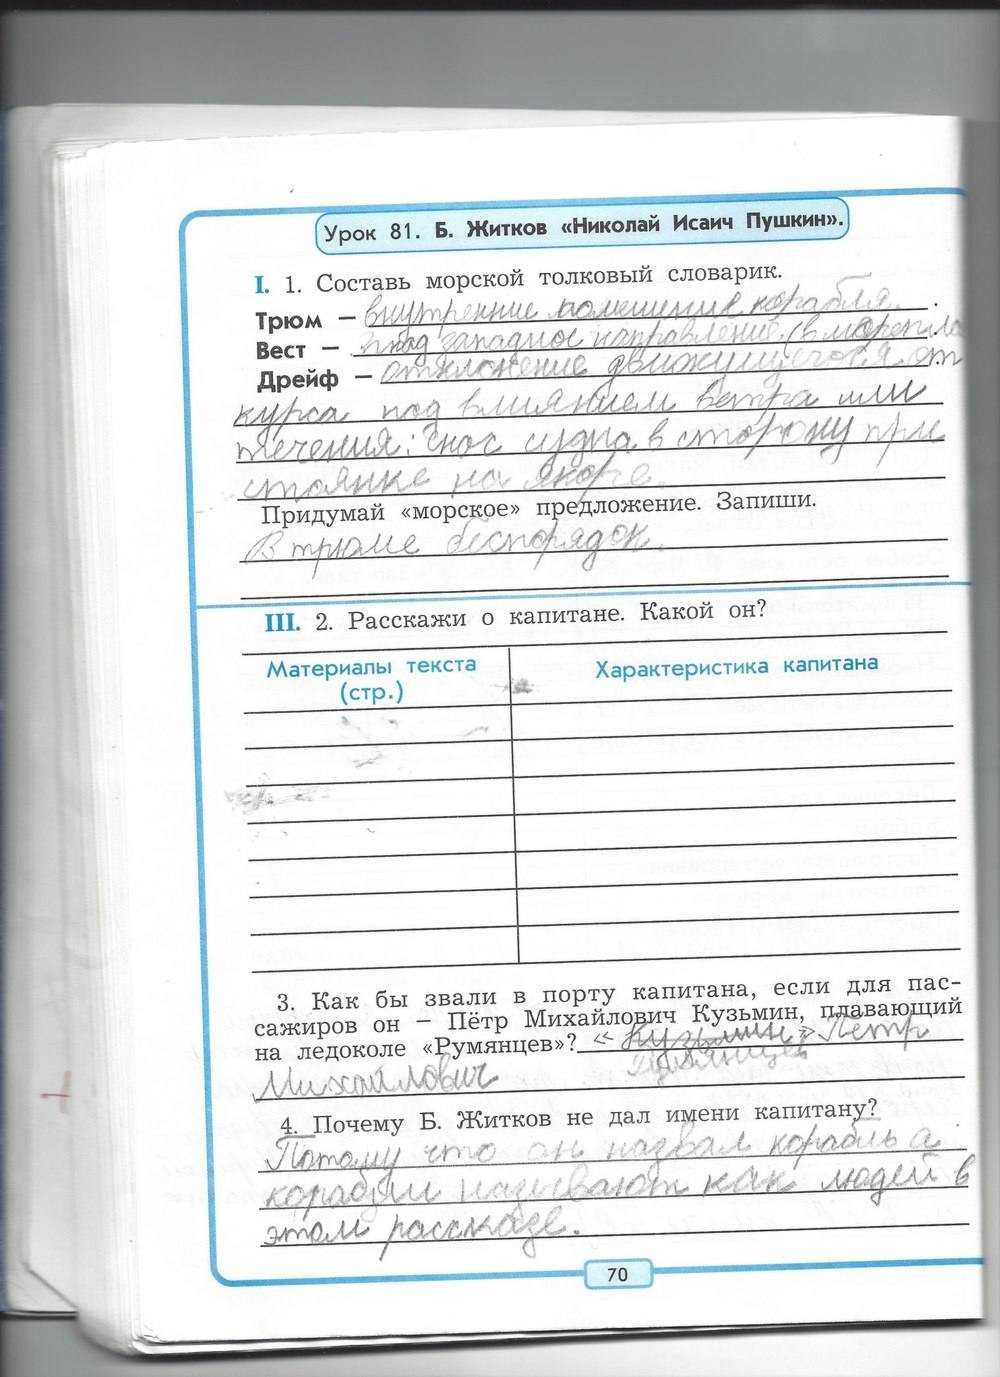 Урок 81. Б. Житков «Николай Исаич Пушкин».
I. 1. Составь морской толковый словарик.
Трюм – внутренние помещение корабля.
Вест – западное направление. (в мореплa
Дрейф – отклонение движущегося от
курса под влиянием ветра или
течения; снос судна в сторону при
стоянке на якоре.
Придумай «морское» предложение. Запиши.
В трюме беспорядок.
III. 2. Расскажи о капитане. Какой он?
Материалы текста Характеристика капитана
(стр.)
3. Как бы звали в порту капитана, если для пас-
сажиров он – Пётр Михайлович Кузьмин, плавающий
на ледоколе «Румянцев»? «Кузьмин» Пётр
Михайлович Румянцев
4. Почему Б. Житков не дал имени капитану?
Потому что он назвал корабль а
корабли называют как людей в
этом рассказе.
70